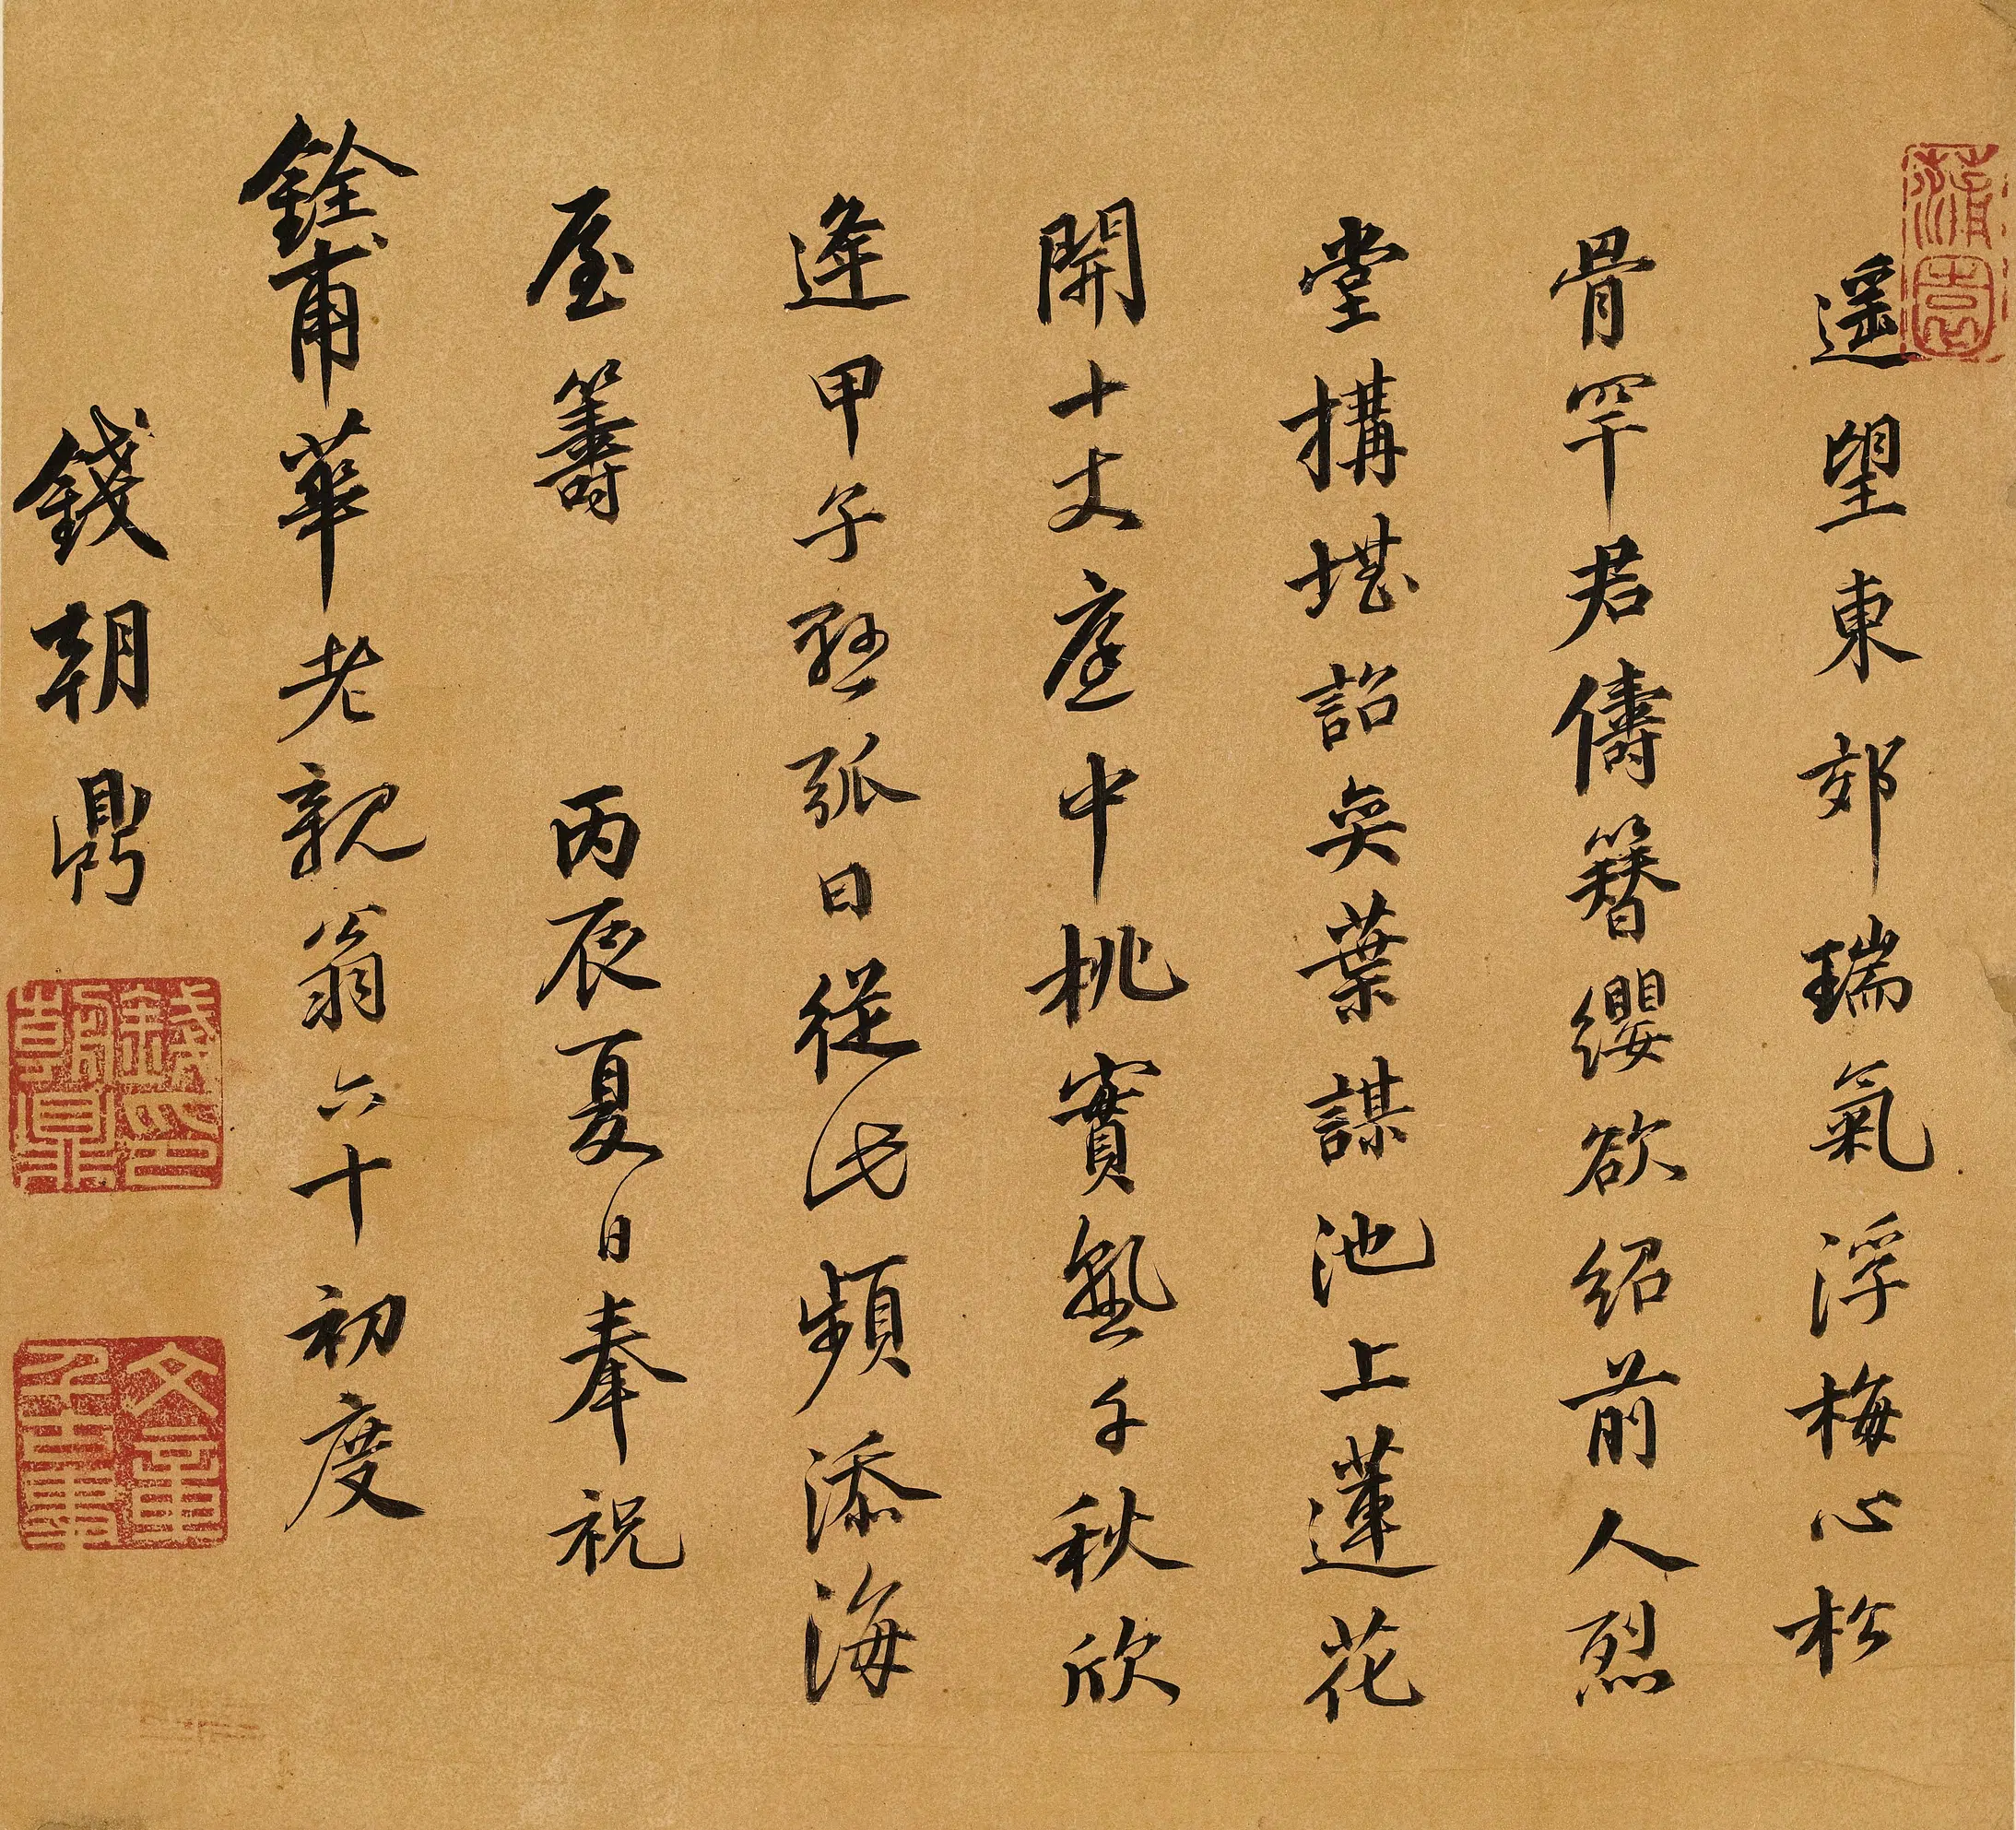 遥望東郊瑞氣浮梅心松
骨罕君儔簪纓欲紹前人烈
堂搆堪詒奕葉謀池上蓮花
開十丈庭中桃實熟千秋欣
逢甲子懸弧日從此頻添海
屋籌 丙辰夏日奉祝
銓甫華老親翁六十初度
錢朝鼎
錢朝鼎印